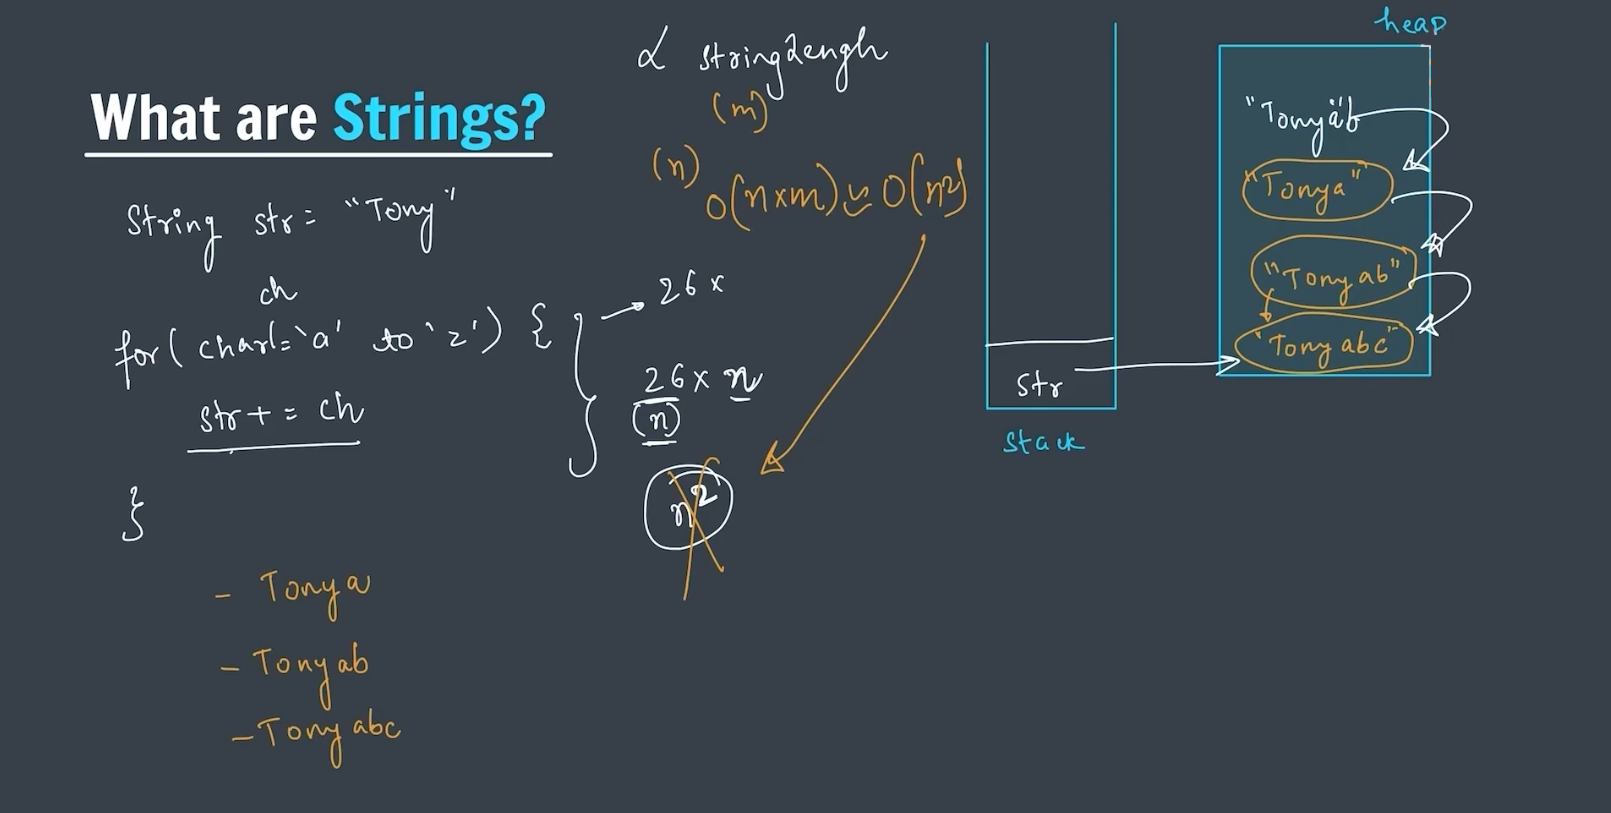 What are Strings?
String str = "Tony"
ch
for( char = 'a' to 'z') {
str + = ch
}
- Tonya
- Tonyab
- Tonyabc
α StringLengh
(m)
(n)
O(n×m) ≌ O(n²)
26 x
26 x n
(n)
n²
str
stack
heap
"Tony"
"Tonya"
"Tonyab"
"Tonyabc"